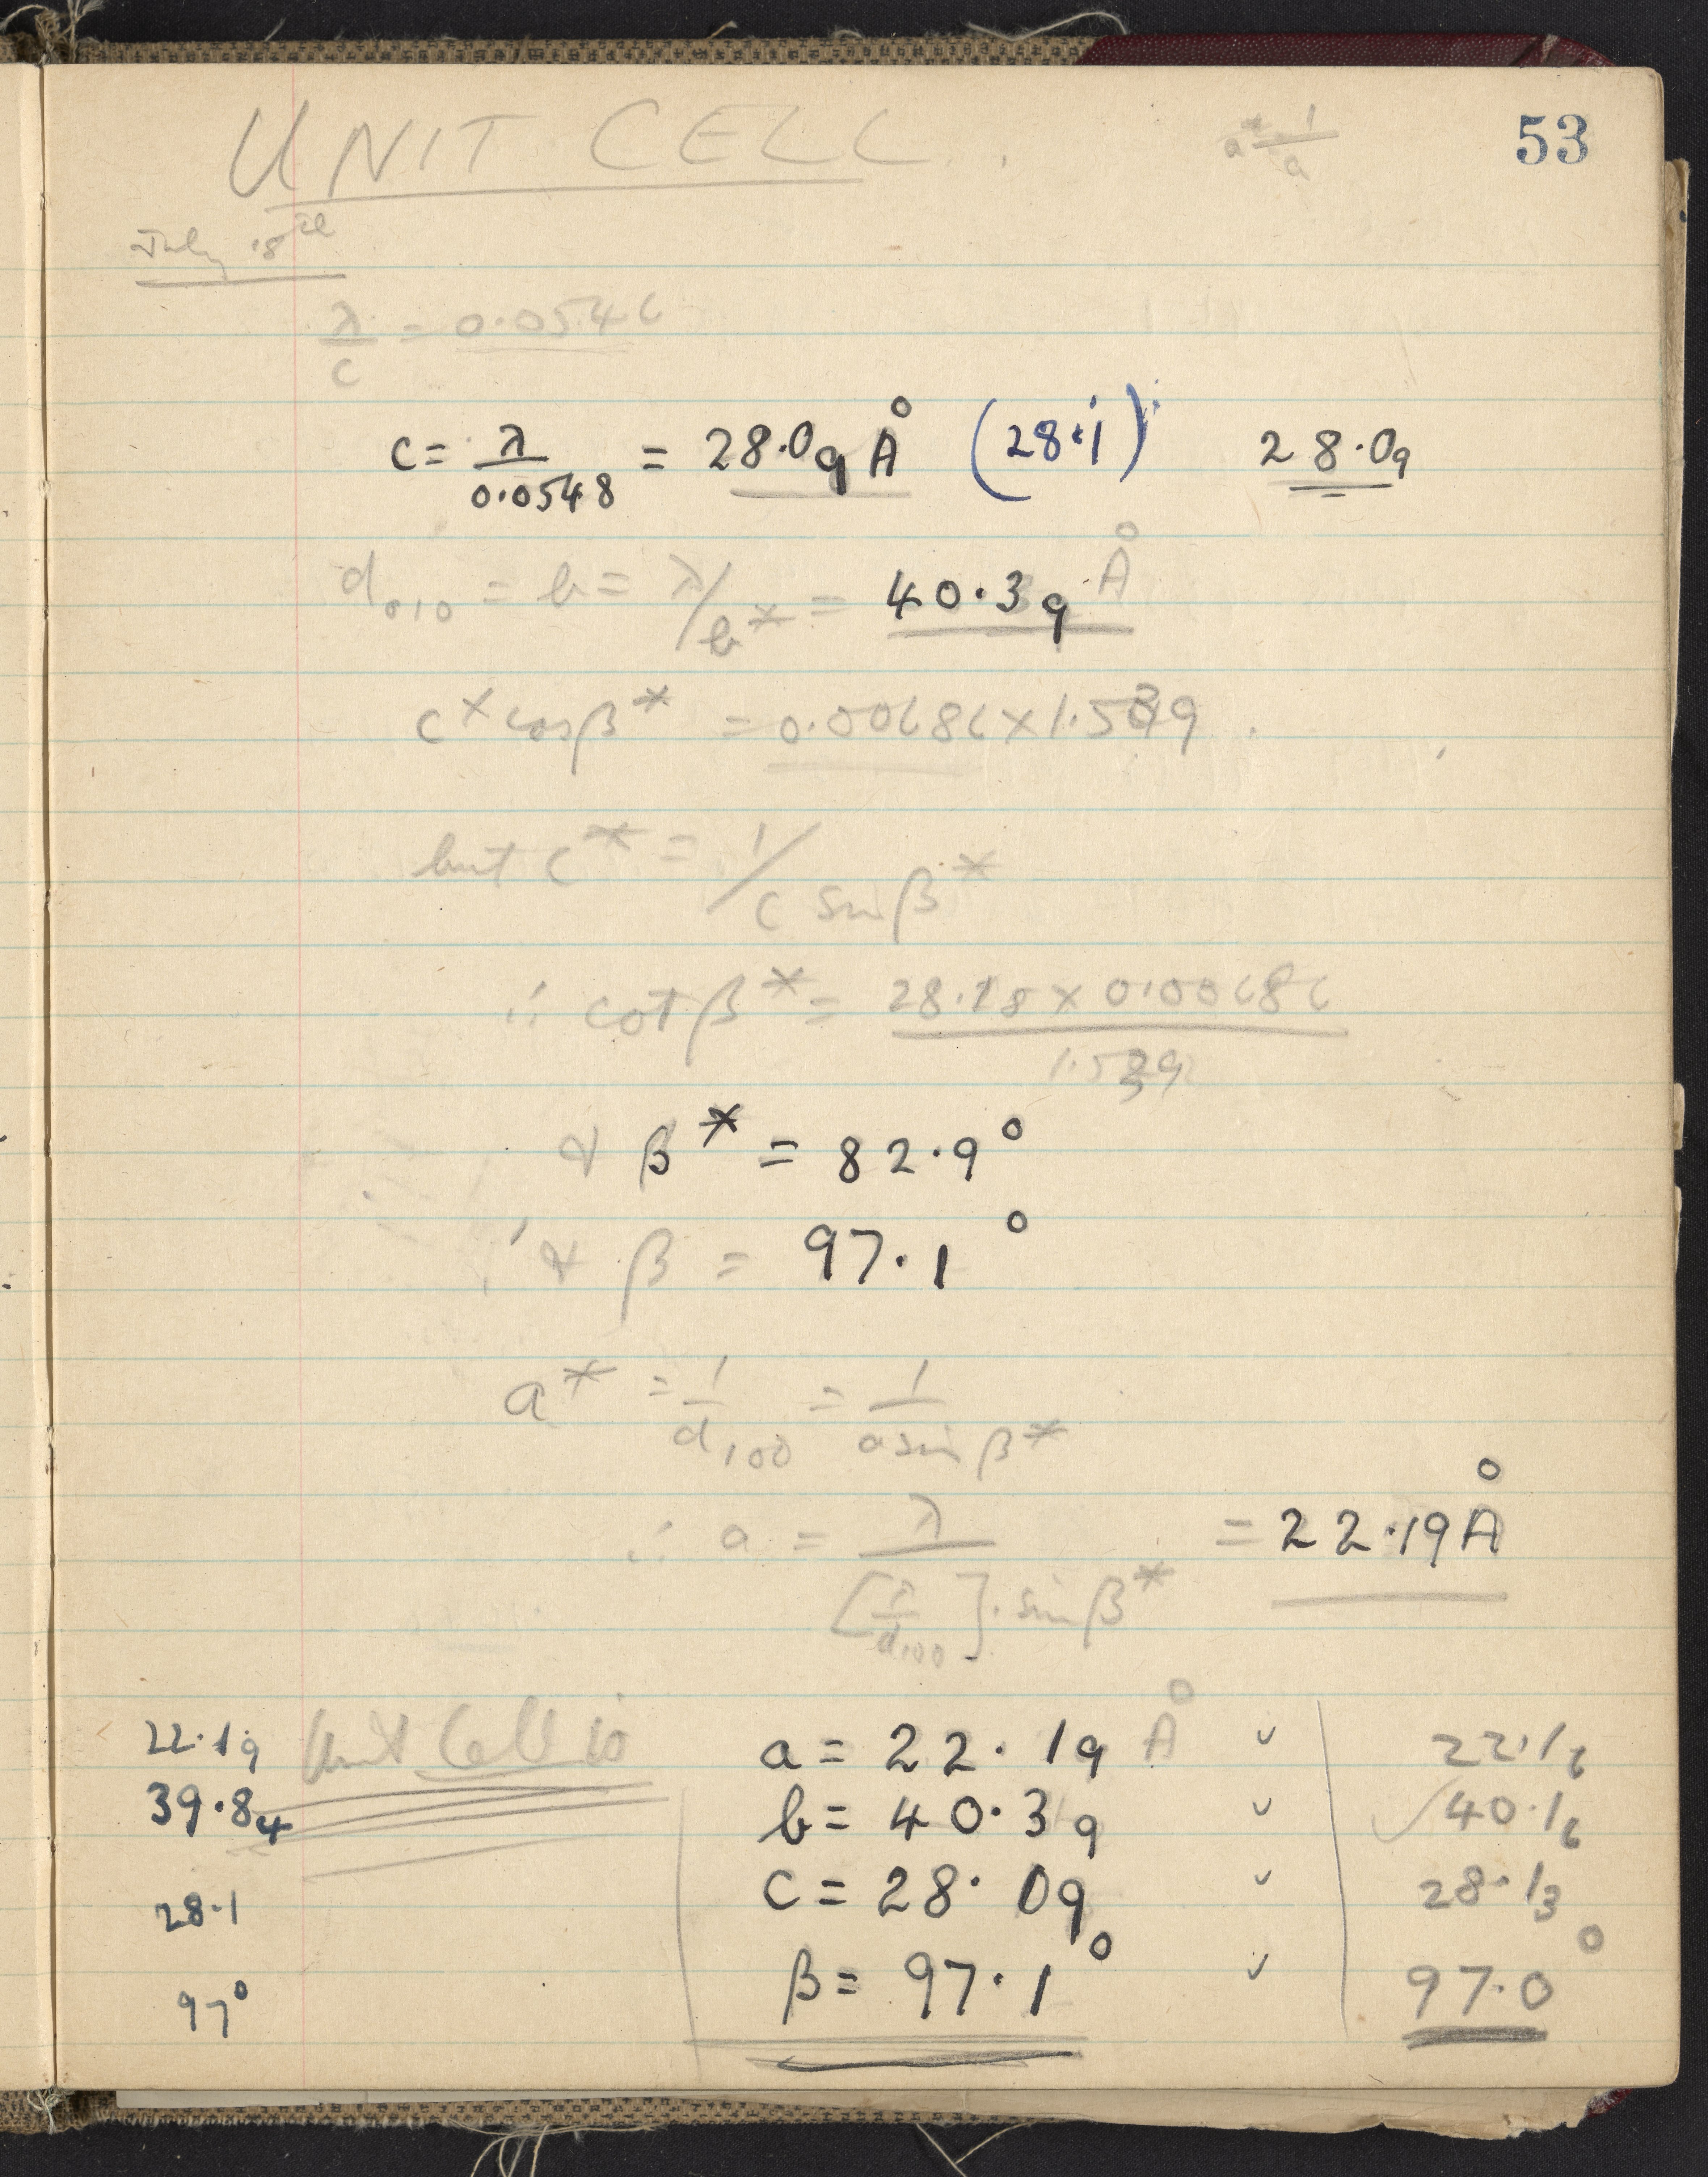 UNIT CELL.
a* = 1/a
53
July 18th
λ/c = 0.0546
c = λ/0.0548 = 28.09 Å (28.1) 28.09
d010 = b = λ/b* = 40.39 Å
c* cosβ* = 0.00686 × 1.539
but c* = 1/c sinβ*
∴ cotβ* = 28.18 × 0.00686/1.539
& β* = 82.9°
∴ & β = 97.1°
a* = 1/d100 = 1/a sinβ*
∴ a = λ/[λ/d100].sinβ* = 22.19 Å
22.19 Unit Cell is a = 22.19 Å ✓ 22.16
39.84 b = 40.39 ✓ ✓40.16
28.1 c = 28.09 ✓ 28.13
97° β = 97.1° ✓ 97.0°